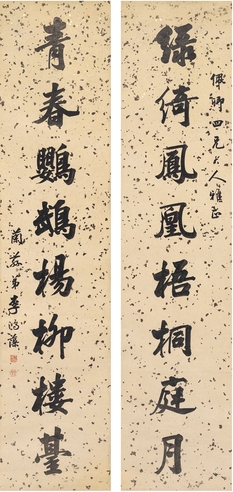 佩卿四兄大人雅正
綠綺鳳凰梧桐庭月
青春鸚鵡楊柳樓臺
蘭蓀弟李鴻藻